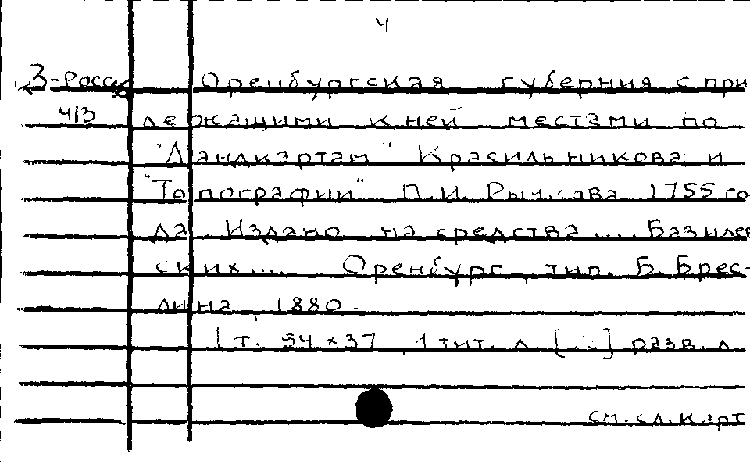 4
З-Росс Оренбургская губерния с при
4/3 лежащими к ней местами по
"Ландкартам" Красильникова и
"Топографии" П.И. Рычкова 1755 го
да. Издано на средства... Базилев
ских.... Оренбург, тип. Б. Брес-
лина, 1880.
1 т. 54×37, 1 тит. л. [...] разв. л.
см. сл. карт